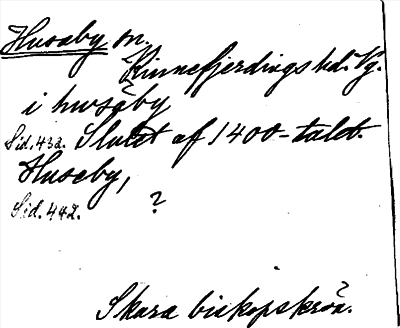 Husaby sn.
Kinnefjerdings hd. Vg.
i husaby
Sid. 432. Slutet af 1400-talet.
Huseby,
Sid. 442. ?
Skara biskopskrön.